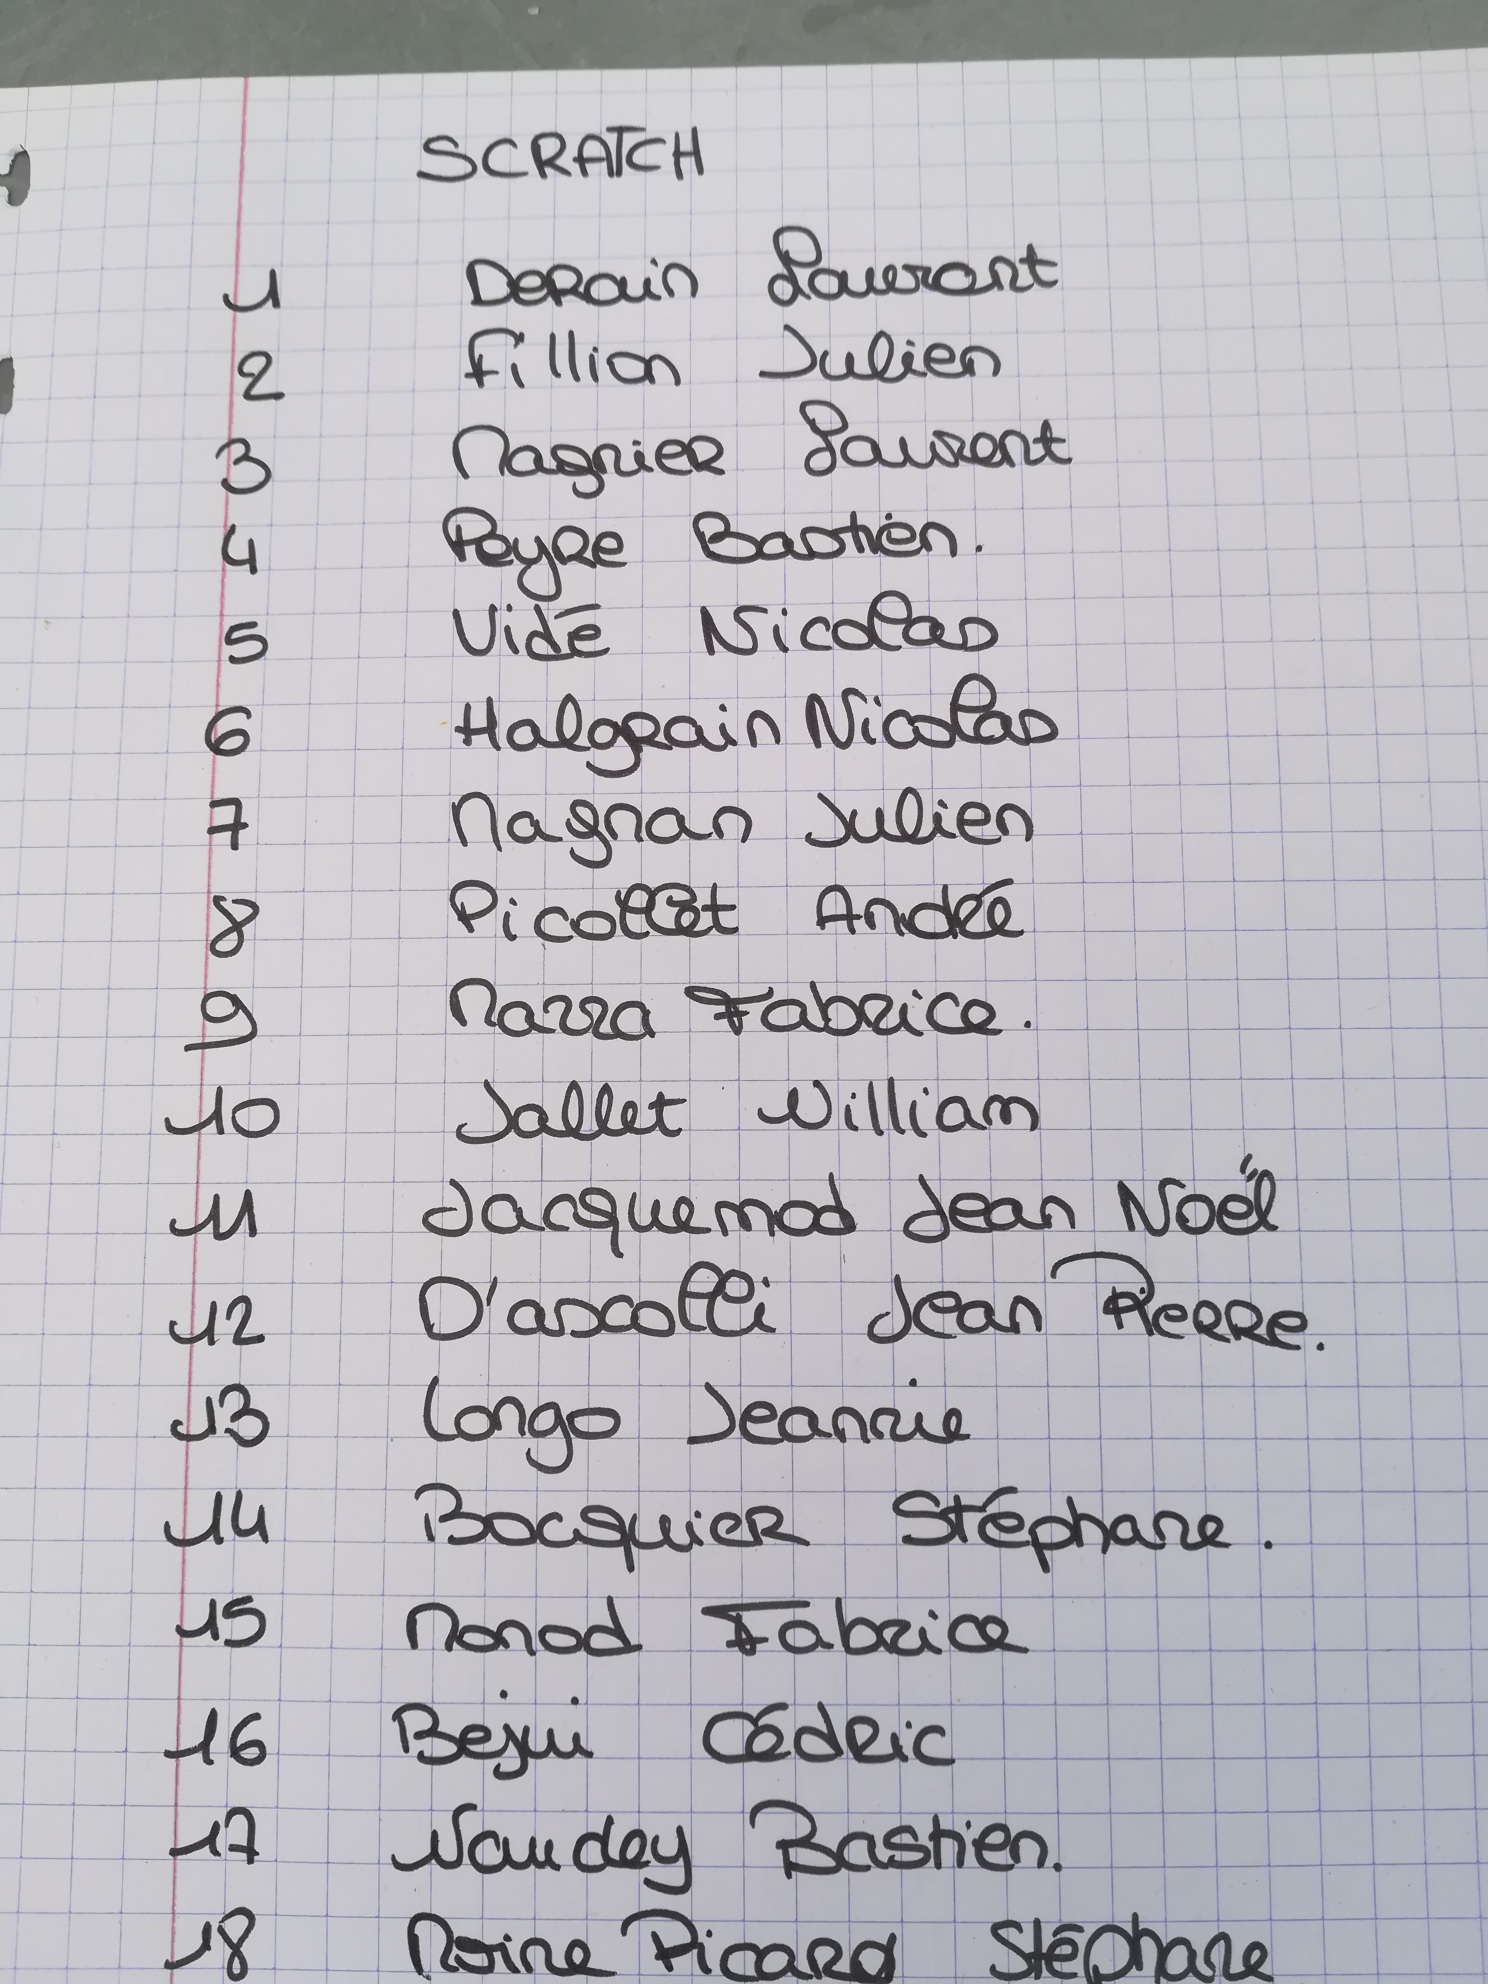 SCRATCH
1 Derain Laurent
2 Fillion Julien
3 Magnier Laurent
4 Peyre Bastien.
5 Vidé Nicolas
6 Halgrain Nicolas
7 Magnan Julien
8 Picollet André
9 Mazza Fabrice.
10 Jallet William
11 Jacquemod Jean Noël
12 D'ascolli Jean Pierre.
13 Longo Jeannie
14 Bocquier Stéphane.
15 Monod Fabrice
16 Bejui Cédric
17 Naudey Bastien.
18 Moine Picard Stéphane